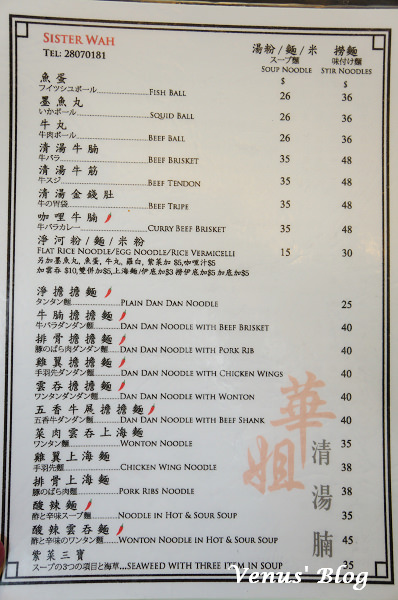 SISTER WAH
TEL: 28070181
湯粉/麵/米 撈麵
スープ麵 味付け麵
SOUP NOODLE STIR NOODLES
$ $
魚蛋
フイツシュボール FISH BALL 26 36
墨魚丸
いかボール SQUID BALL 26 36
牛丸
牛肉ボール BEEF BALL 26 36
清湯牛腩
牛バラ BEEF BRISKET 35 48
清湯牛筋
牛スジ BEEF TENDON 35 48
清湯金錢肚
牛の胃袋 BEEF TRIPE 35 48
咖哩牛腩
牛バラカレー CURRY BEEF BRISKET 35 48
淨河粉/麵/米粉
FLAT RICE NOODLE/EGG NOODLE/RICE VERMICELLI 15 30
另加墨魚丸, 魚蛋, 牛丸, 蘿白, 紫菜加 $5,咖喱汁$5
加雲吞 $10,雙併加$5,上海麵/伊底加$3 撈伊底加$5 加底加$5
淨擔擔麵
タンタン麵 PLAIN DAN DAN NOODLE 25
牛腩擔擔麵
牛バラダンダン麵 DAN DAN NOODLE WITH BEEF BRISKET 40
排骨擔擔麵
豚のばら肉ダンダン麵 DAN DAN NOODLE WITH PORK RIB 40
雞翼擔擔麵
手羽先ダンダン麵 DAN DAN NOODLE WITH CHICKEN WINGS 40
雲吞擔擔麵
ワンタンダンダン麵 DAN DAN NOODLE WITH WONTON 40
五香牛展擔擔麵
五香牛ダンダン麵 DAN DAN NOODLE WITH BEEF SHANK 40
菜肉雲吞上海麵
ワンタン麵 WONTON NOODLE 35
雞翼上海麵
手羽先麵 CHICKEN WING NOODLE 38
排骨上海麵
豚のばら肉麵 PORK RIBS NOODLE 38
酸辣麵
酢と辛味スープ麵 NOODLE IN HOT & SOUR SOUP 35
酸辣雲吞麵
酢と辛味のワンタン麵 WONTON NOODLE IN HOT & SOUR SOUP 45
紫菜三寶
スープの3つの項目と海草 SEAWEED WITH THREE ITEM IN SOUP 35
華姐
清湯腩
Venus' Blog